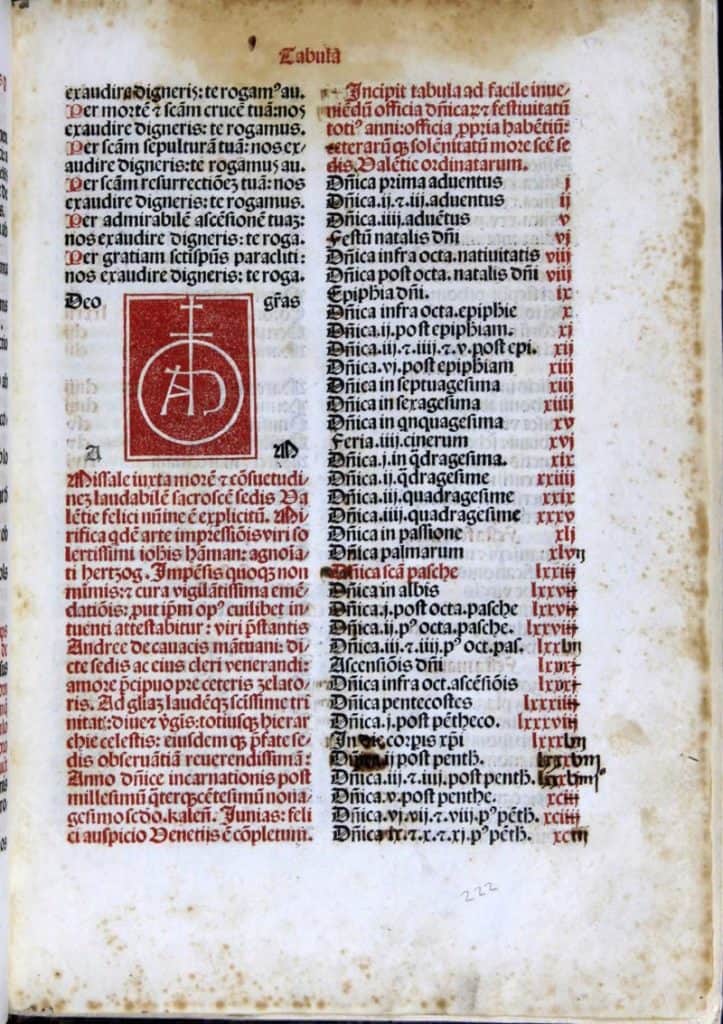 Tabula
exaudire digneris: te rogamꝰ au.
Per mortē ⁊ scām crucē tuā: nos
exaudire digneris: te rogamus.
Per scām sepulturā tuā: nos ex-
audire digneris: te rogamus au.
Per scām resurrectiōeꝫ tuā: nos
exaudire digneris: te rogamus.
Per admirabilē ascēsionē tuaꝫ:
nos exaudire digneris: te roga.
Per gratiam sctispūs paracliti:
nos exaudire digneris: te roga.
Deo grās
AD
A M
Missale iuxta morē ⁊ cōsuetudi-
neꝫ laudabilē sacroscē sedis Va
lētie felici nūine ē explicitū. Mi
rifica qdē arte impressiōis viri so
lertissimi iohīs hāman: agnoīa
ti hertzog. Impēsis quoqꝫ non
minimis: ⁊ cura vigilātissima emē
datiōis: put ipm opꝰ cuilibet in-
tuenti attestabitur: viri pstantis
Andree de cauacis mātuani: di
cte sedis ac eius cleri venerandi:
amore pcipuo pre ceteris zelato
ris. Ad gliaꝫ laudēqꝫ scissime tri
nitatꝭ: diue ⁊ vgīs: totiusqꝫ hierar
chie celestis: eiusdem qꝫ pfate se-
dis obseruātiā reuerendissimā:
Anno dn̄ice incarnationis post
millesimū qterqꝫcētesimū nona-
gesimo scdo. kalen̄. Junias: feli
ci auspicio Venetijs ē cōpletum.
Incipit tabula ad facile inue-
niēdū officia dn̄icaꝝ ⁊ festiuitatū
totiꝰ anni: officia ꝓpria habētiū:
ceterarū qꝫ solēnitatū more scē se
dis. Valētie ordinatarum.
Dn̄ica prima aduentus j
Dn̄ica.ij.⁊.iij.aduentus ij
Dn̄ica.iiij.aduētus v
Festū natalis dn̄i vj
Dn̄ica infra octa.natiuitatis viij
Dn̄ica post octa. natalis dn̄i viij
Epiphīa dn̄i. ix
Dn̄ica infra octa.epiphie x
Dn̄ica.ij.post epiphiam. xj
Dn̄ica.iij.⁊.iiij.⁊.v.post epi. xij
Dn̄ica.vj.post epiphiam xiij
Dn̄ica in septuagesima xiij
Dn̄ica in sexagesima xiiij
Dn̄ica in qnquagesima xv
Feria.iiij.cinerum xvj
Dn̄ica.j.in qdragesima. xix
Dn̄ica.ij.qdragesime xxiiij
Dn̄ica.iij.quadragesime xxix
Dn̄ica.iiij.quadragesime xxxv
Dn̄ica in passione xlj
Dn̄ica palmarum xlvij
Dn̄ica scā pasche lxxiij
Dn̄ica in albis lxxvij
Dn̄ica.j.post octa.pasche lxxvij
Dn̄ica.ij.pꝰ octa.pasche. lxxviij
Dn̄ica.iij.⁊.iiij.pꝰ oct.pas.
Ascensiōis dn̄i
Dn̄ica infra oct.ascēsiōis
Dn̄ica pentecostes lxxxiiij
Dn̄ica.j.post pētheco. lxxxviij
In die corpis xpi
Dn̄ica.ij post penth.
Dn̄ica.iij.⁊.iiij.post penth.
Dn̄ica.v.post penthe. xciij
Dn̄ica.vj.vij.⁊.viij.pꝰ pēth. xciiij
Dn̄ica ix.⁊.x.⁊.xj.pꝰ pēth.
222